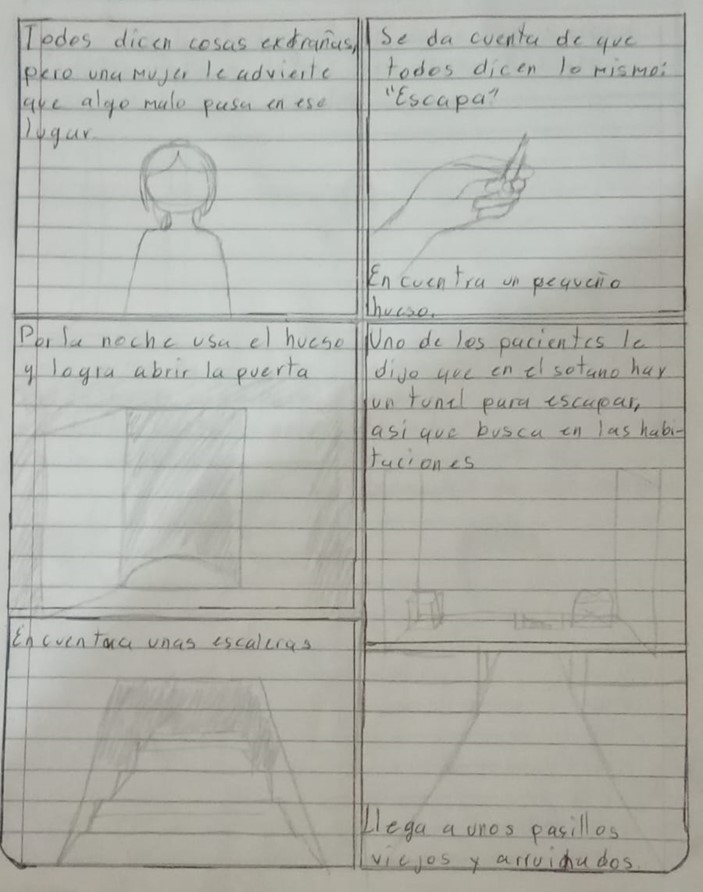 Todos dicen cosas extrañas,
pero una mujer le advierte
que algo malo pasa en ese
lugar.
Se da cuenta de que
todos dicen lo mismo:
"Escapa"
Encuentra un pequeño
hueso.
Por la noche usa el hueso
y logra abrir la puerta
Uno de los pacientes le
dijo que en el sotano hay
un tunel para escapar,
asi que busca en las habi-
taciones
Encuentra unas escaleras
Llega a unos pasillos
viejos y arruinados.